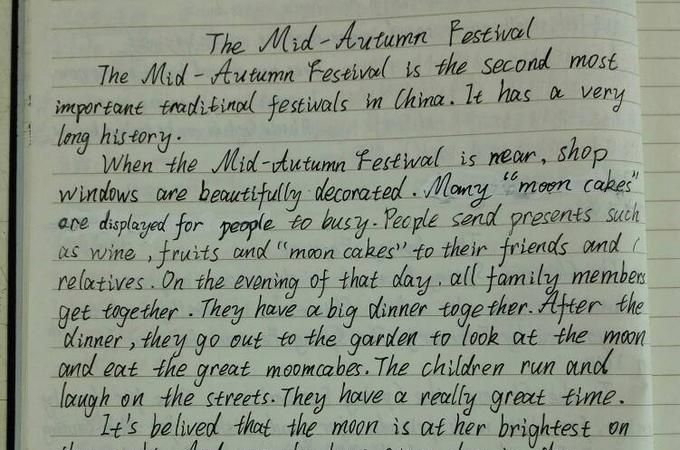 The Mid-Autumn Festival
The Mid-Autumn Festival is the second most
important traditinal festivals in China. It has a very
long history.
When the Mid-Autumn Festival is near, shop
windows are beautifully decorated. Many "moon cakes"
are displayed for people to busy. People send presents such
as wine, fruits and "moon cakes" to their friends and
relatives. On the evening of that day, all family members
get together. They have a big dinner together. After the
dinner, they go out to the garden to look at the moon
and eat the great mooncabes. The children run and
laugh on the streets. They have a really great time.
It's belived that the moon is at her brightest on